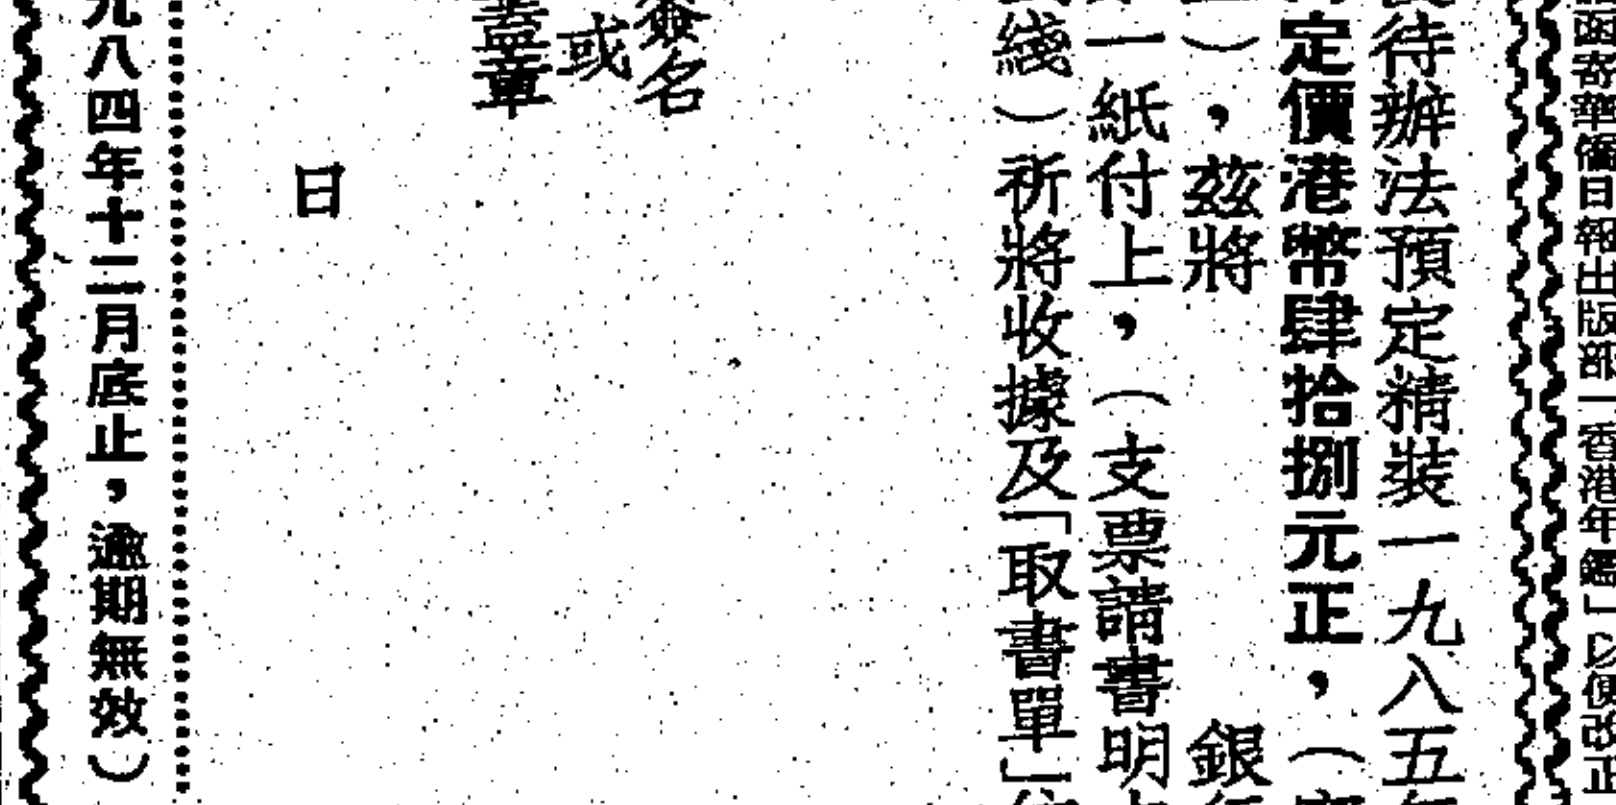 函寄華僑日報出版部一香港年鑑」以便改正
待辦法預定精裝一九八五年
定價港幣肆拾捌元正，（
），茲將　銀行
一紙付上，（支票請書明
綫）祈將收據及「取書單」
簽名
或
蓋章
日
元八四年十二月底止，逾期無效）